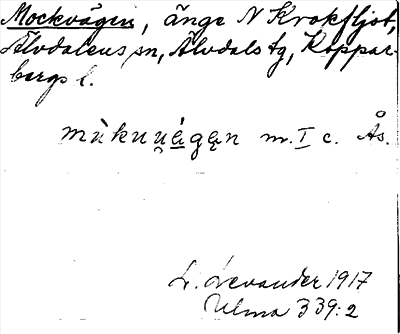 Mockvägin, änge N Krokfljot,
Älvdalens sn, Älvdals tg, Koppar-
bergs l.
mùkuu̯ágęn m. I c. Ås.
L. Levander 1917
Ulma 339:2